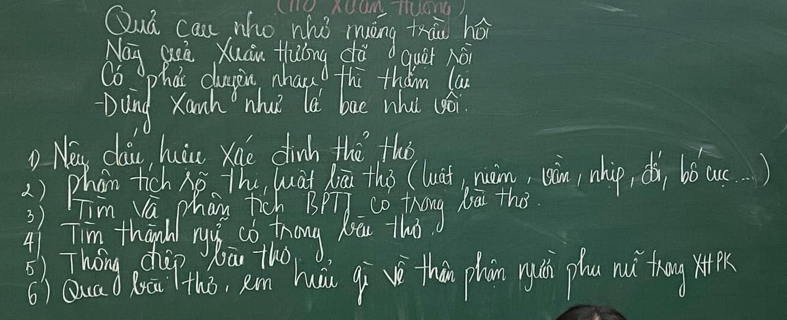 (Hồ Xuân Hương)
Quả cau nho nhỏ miếng trầu hôi
Này của Xuân Hương đã quệt rồi
Có phải duyên nhau thì thắm lại
-Đừng xanh như lá bạc như vôi.
1) Nêu dấu hiệu xác định thể thơ
2) phân tích rõ thi luật bài thơ (luật, niêm, vần, nhịp, đối, bố cục....)
3) Tìm và phân tích BPTT có trong bài thơ.
4) Tìm thành ngữ có trong bài thơ.
5) Thông điệp bài thơ.
6) Qua bài thơ, em hiểu gì về thân phận người phụ nữ trong XHPK